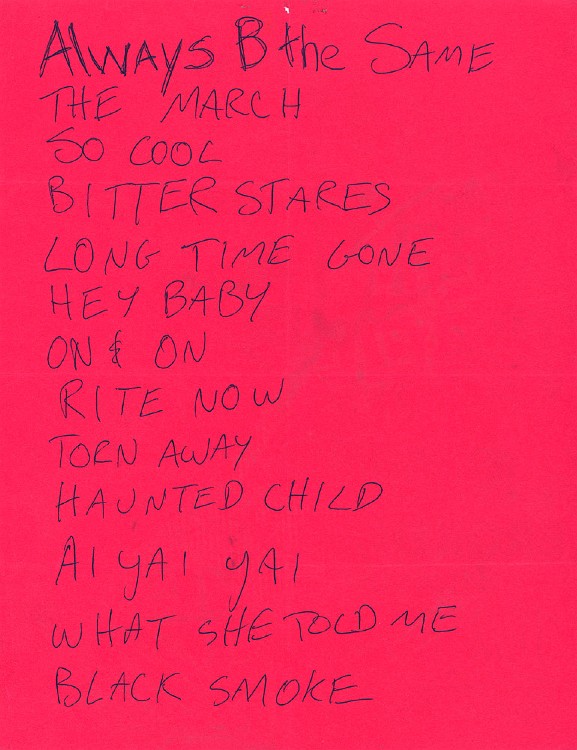 Always B the Same
THE MARCH
SO COOL
BITTER STARES
LONG TIME GONE
HEY BABY
ON & ON
RITE NOW
TORN AWAY
HAUNTED CHILD
AI YAI YAI
WHAT SHE TOLD ME
BLACK SMOKE